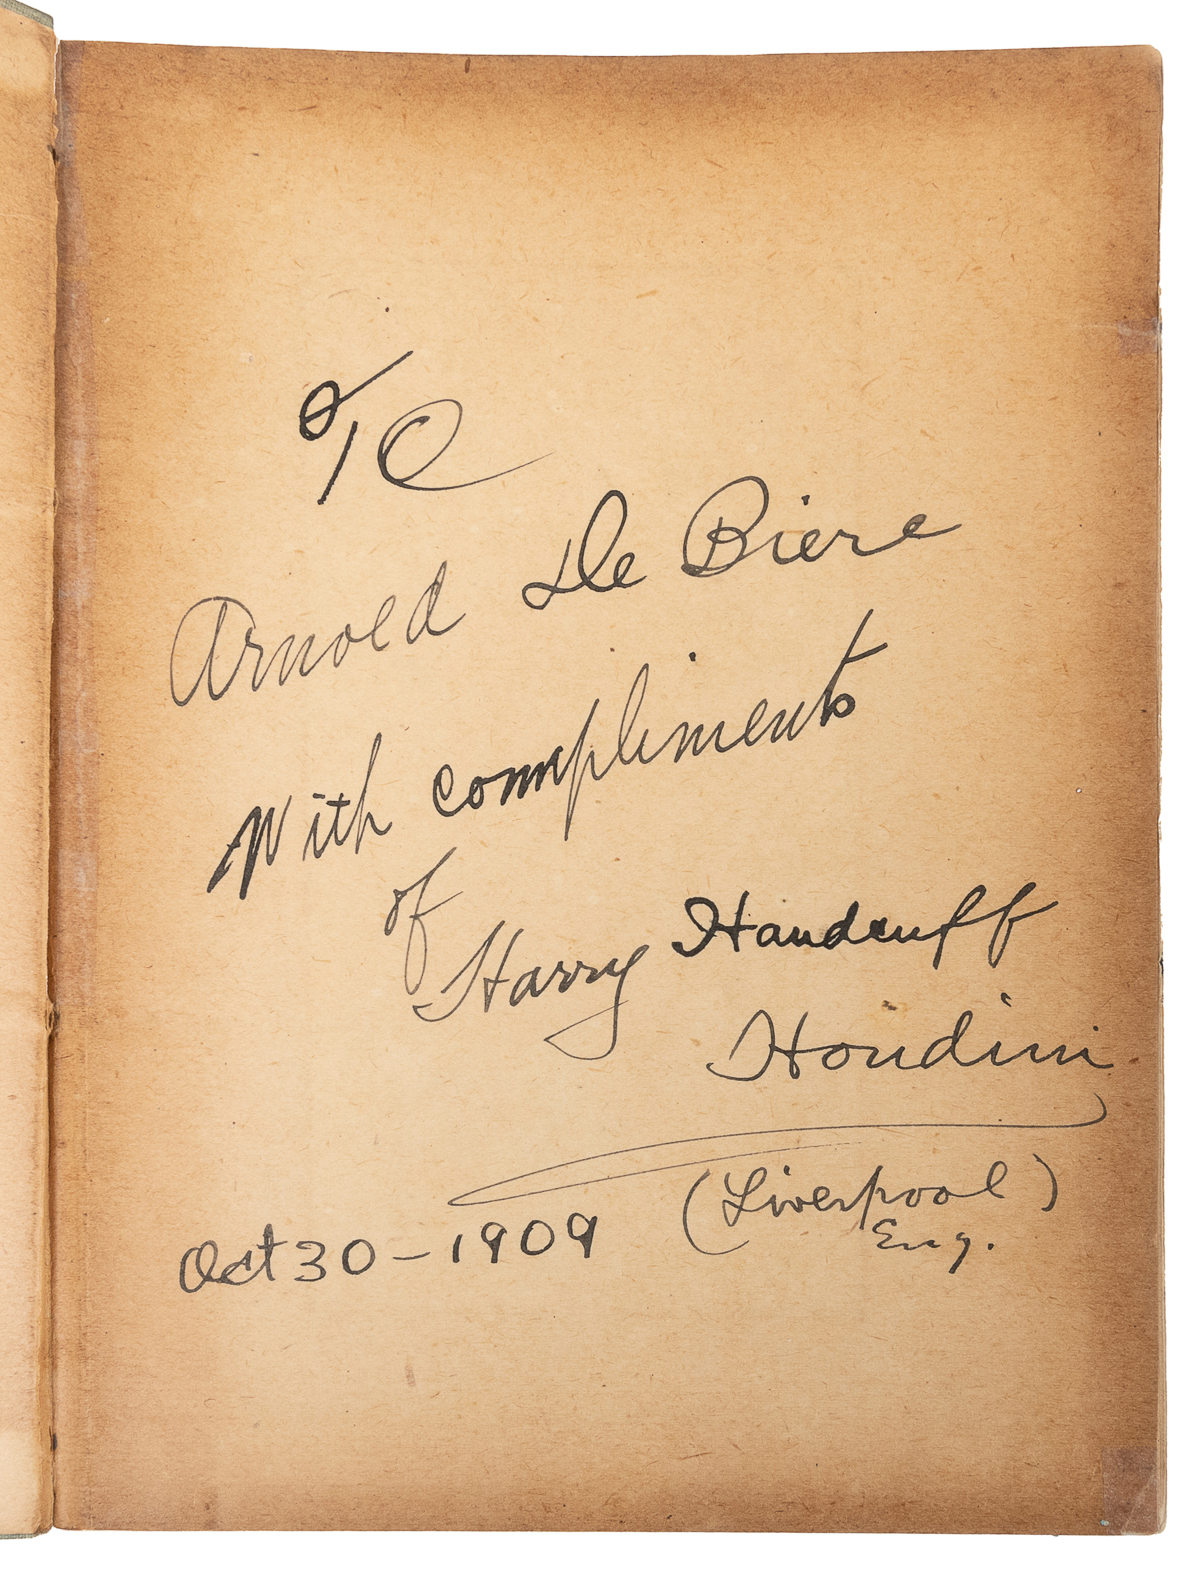 To
Arnold De Biere
With compliments
of
Harry Handcuff
Houdini
(Liverpool)
Eng.
Oct 30 - 1909